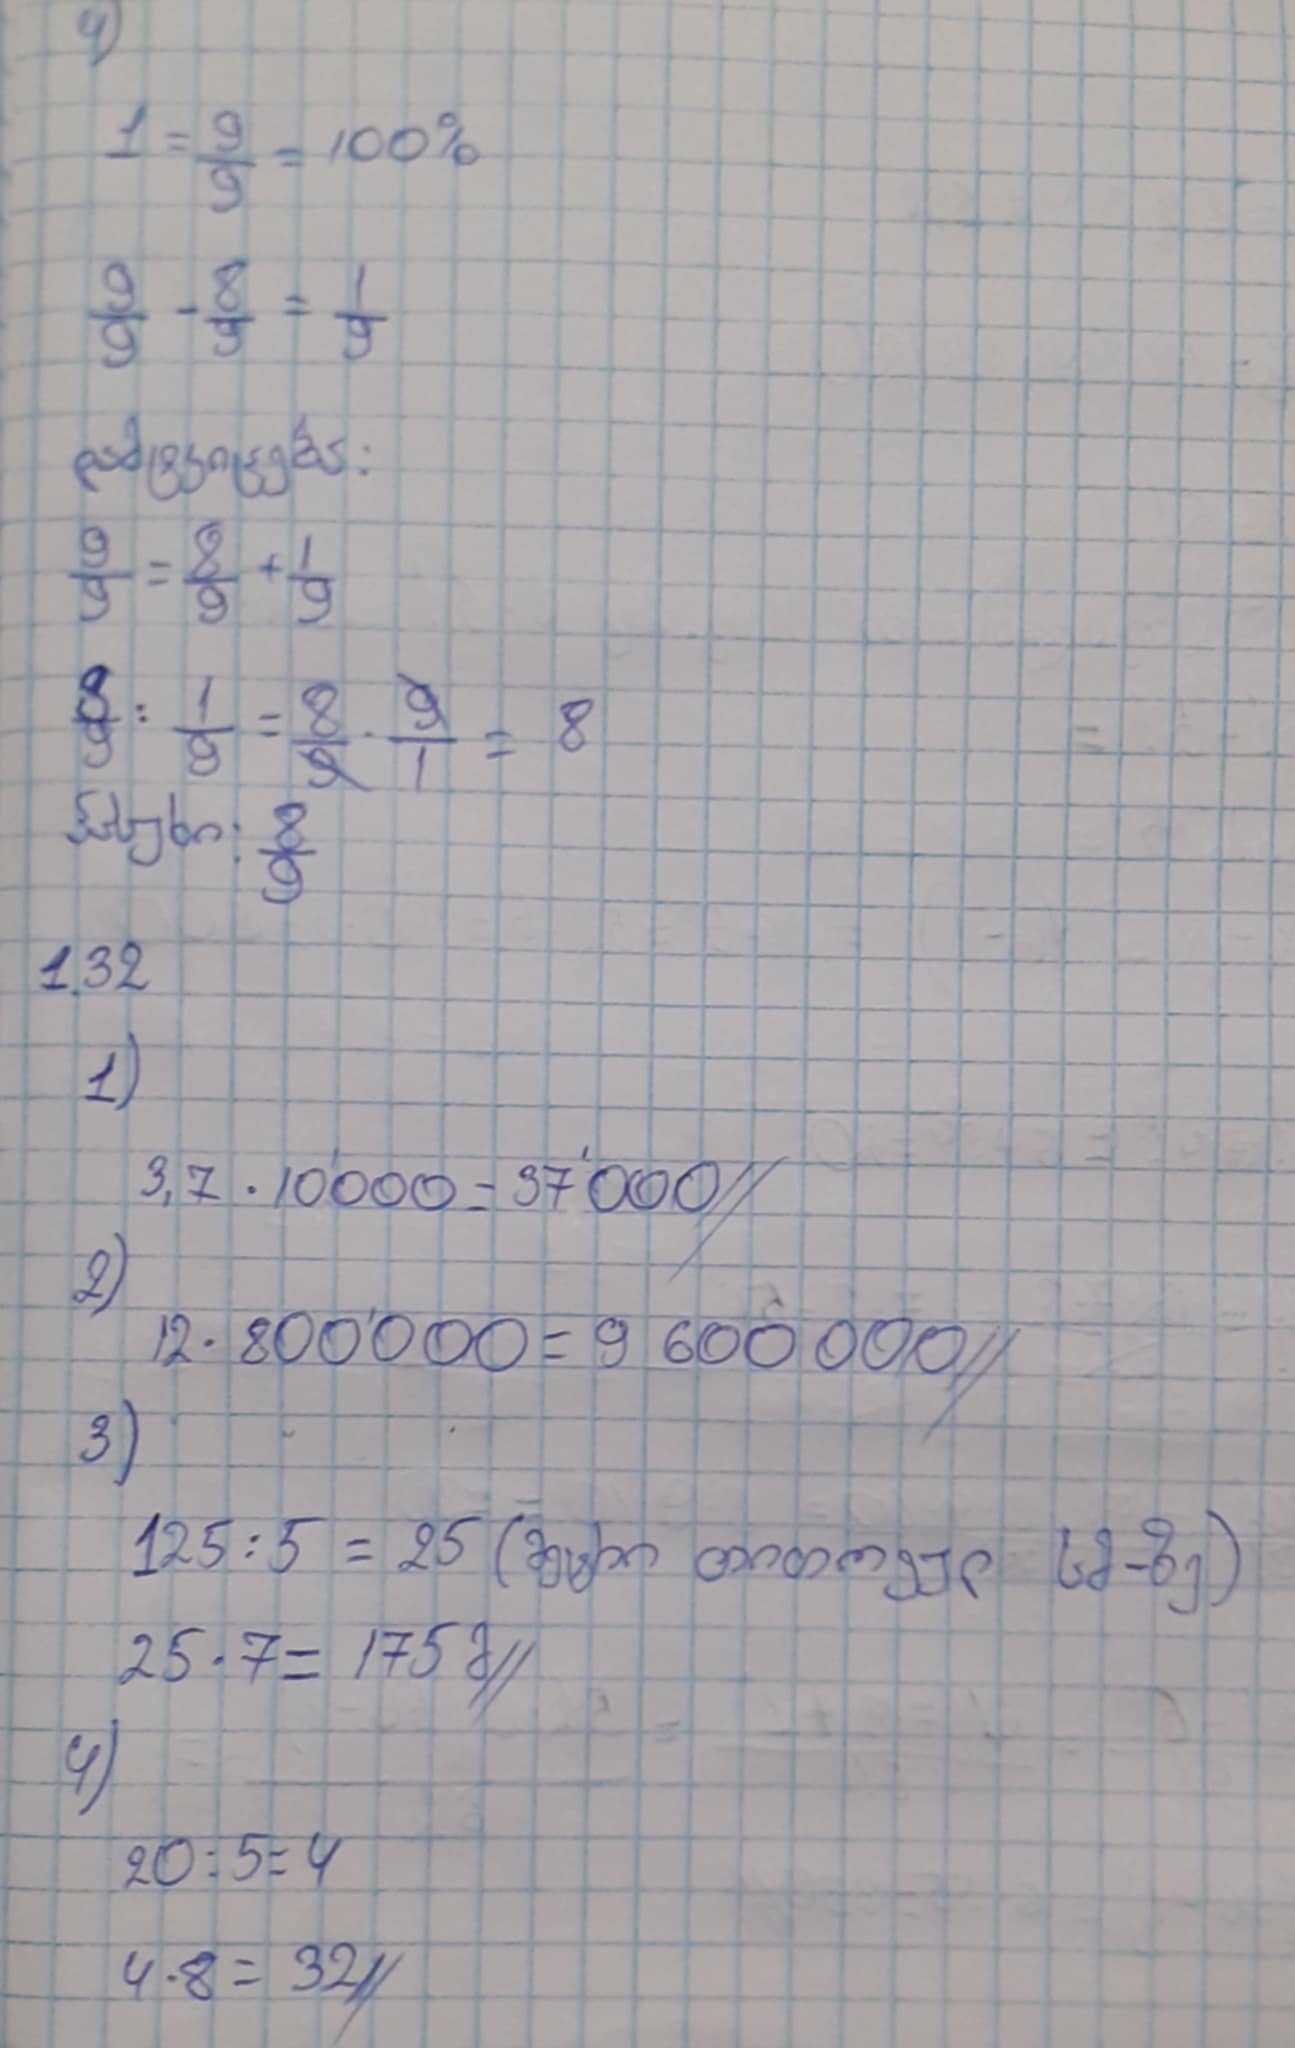 4)
1 = 9/9 = 100%
9/9 - 8/9 = 1/9
დამტკიცება:
9/9 = 8/9 + 1/9
8/9 : 1/9 = 8/9 · 9/1 = 8
პასუხი: 8/9
1.32
1)
3,7 · 10'000 = 37'000//
2)
12 · 800'000 = 9 600 000//
3)
125 : 5 = 25 ( თითოეულ სმ-ზე)
25 · 7 = 175 გ//
4)
20 : 5 = 4
4 · 8 = 32//